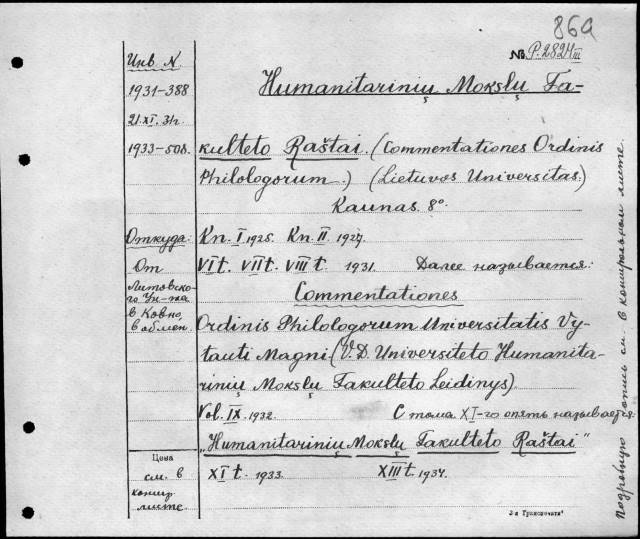 86a
№ P-2824 III
Инв. N.
1931-388
21.XI.31г.
1933-508.
Humanitarinių Mokslų Fa-
kulteto Raštai. (Commentationes Ordinis
Philologorum.) (Lietuvos Universitas.)
Kaunas. 8°.
Откуда:
От
Литовско-
го Ун-та
в Ковно,
в обмен.
Kn. I 1925. Kn. II. 1927.
VI t. VII t. VIII t. 1931. Далее называется:
Commentationes
Ordinis Philologorum Universitatis Vy-
tauti Magni (V.D. Universiteto Humanita-
rinių Mokslų Fakulteto Leidinys).
Vol. IX. 1932. С тома XI-го опять называется:
"Humanitarinių Mokslų Fakulteto Raštai"
XI t. 1933. XIII t. 1934.
Цена
см. в
контр.
листе.
3-я Транспечати
Подробную опись см. в контрольном листе.